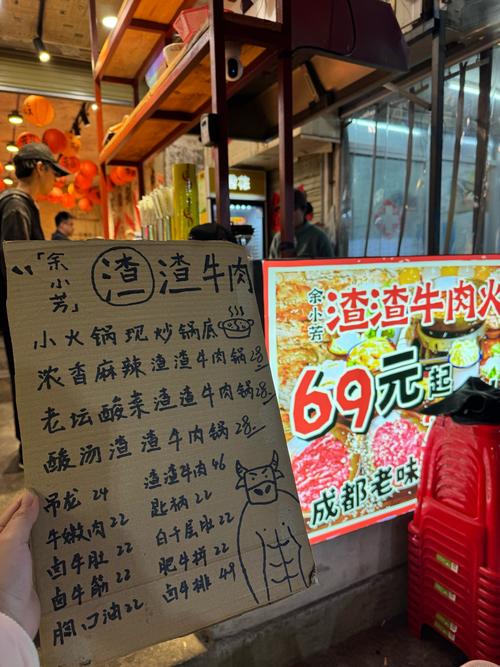 「余小芳」
渣渣牛肉
小火锅现炒锅底
浓香麻辣渣渣牛肉锅28
老坛酸菜渣渣牛肉锅28
酸汤渣渣牛肉锅28
吊龙 24
牛嫩肉 22
卤牛肚 22
卤牛筋 22
胸口油 22
渣渣牛肉 46
匙柄 22
白千层肚 22
肥牛拼 22
卤牛排 49
余小芳
渣渣牛肉火
69元起
成都老味